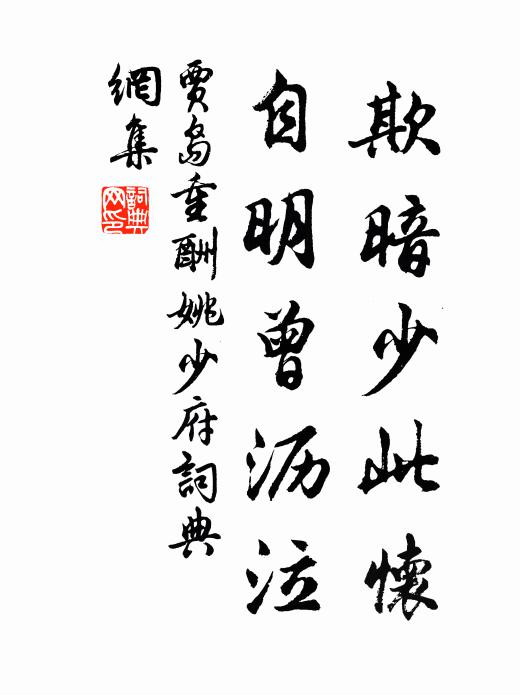 欺暗少此懷
自明曾沥泣
賈島重酬姚少府詞典
網集
詞典
网印